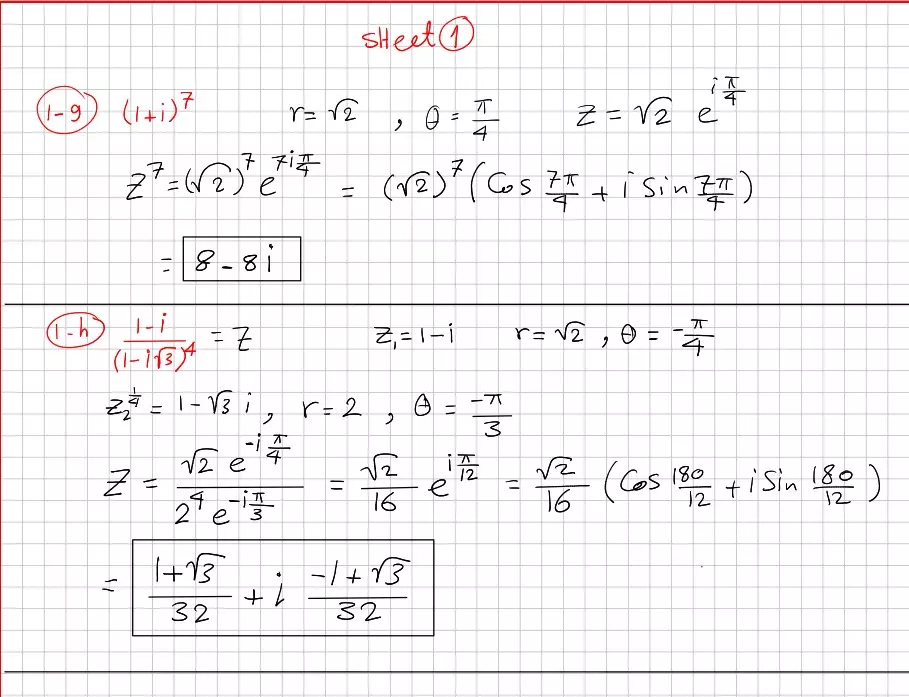 sHeet ①
1-g (1+i)^7 r=√2 , θ=π/4 Z=√2 e^(iπ/4)
Z^7=(√2)^7 e^(7iπ/4) = (√2)^7 (Cos 7π/4 + i Sin 7π/4)
= 8-8i
1-h (1-i)/(1-i√3)^4 = Z Z₁=1-i r=√2 , θ=-π/4
Z₂^(1/4) = 1-√3 i , r=2 , θ=-π/3
Z = (√2 e^(-iπ/4))/(2^4 e^(-iπ/3)) = √2/16 e^(iπ/12) = √2/16 (Cos 180/12 + i Sin 180/12)
= (1+√3)/32 + i (-1+√3)/32